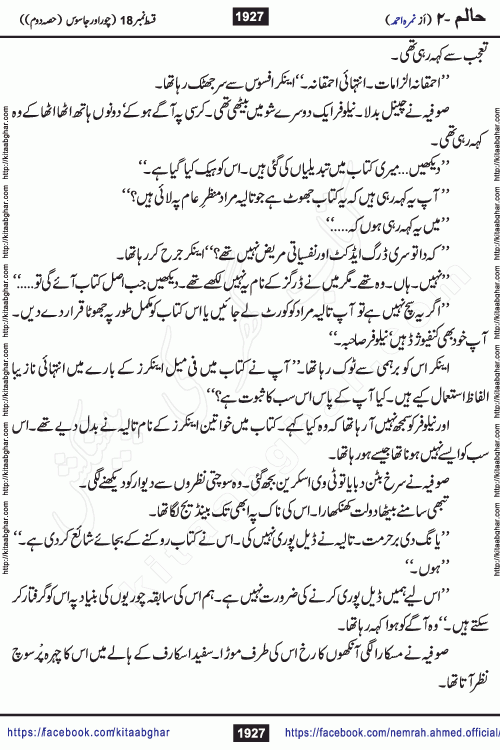 حالم -۲ (از نمرہ احمد)
1927
قسط نمبر 18 (چور اور جاسوس (حصہ دوم))
تعجب سے کہہ رہی تھی۔
’’احمقانہ الزامات۔ انتہائی احمقانہ۔‘‘ اینکر افسوس سے سر جھٹک رہا تھا۔
صوفیہ نے چینل بدلا۔ نیلوفر ایک دوسرے شو میں بیٹھی تھی۔ کرسی پہ آگے ہو کے‘ دونوں ہاتھ اٹھا اٹھا کے وہ
کہہ رہی تھی۔
’’دیکھیں... میری کتاب میں تبدیلیاں کی گئی ہیں۔ اس کو ہیک کیا گیا ہے۔‘‘
’’آپ یہ کہہ رہی ہیں کہ یہ کتاب جھوٹ ہے جو تالیہ مراد منظرِ عام پہ لائی ہیں؟‘‘
’’میں یہ کہہ رہی ہوں کہ.....‘‘
’’کہ داتو سری ڈرگ ایڈکٹ اور نفسیاتی مریض نہیں تھے؟‘‘ اینکر جرح کر رہا تھا۔
’’نہیں۔ ہاں۔ وہ تھے۔ مگر میں نے ڈرگز کے نام یہ نہیں لکھے تھے۔ دیکھیں جب اصل کتاب آئے گی تو.....‘‘
’’اگر یہ سچ نہیں ہے تو آپ تالیہ مراد کو کورٹ لے جائیں یا اس کتاب کو مکمل طور پہ جھوٹا قرار دے دیں۔
آپ خود بھی کنفیوژڈ ہیں‘ نیلوفر صاحبہ۔‘‘
اینکر اس کو برہمی سے ٹوک رہا تھا۔ ’’آپ نے کتاب میں فی میل اینکرز کے بارے میں انتہائی نازیبا
الفاظ استعمال کیے ہیں۔ کیا آپ کے پاس اس سب کا ثبوت ہے؟‘‘
اور نیلوفر کو سمجھ نہیں آ رہا تھا کہ وہ کیا کہے۔ کتاب میں خواتین اینکرز کے نام تالیہ نے بدل دیے تھے۔ اس
سب کو ایسے نہیں ہونا تھا جیسے ہو رہا تھا۔
صوفیہ نے سرخ بٹن دبایا تو ٹی وی اسکرین بجھ گئی۔ وہ سوچتی نظروں سے دیوار کو دیکھنے لگی۔
تبھی سامنے بیٹھا دولت کھنکھارا۔ اس کی ناک پہ ابھی تک بینڈیج لگا تھا۔
’’یانگ دی برحرمت۔ تالیہ نے ڈیل پوری نہیں کی۔ اس نے کتاب روکنے کے بجائے شائع کر دی ہے۔‘‘
’’ہوں۔‘‘
’’اس لیے ہمیں ڈیل پوری کرنے کی ضرورت نہیں ہے۔ ہم اس کی سابقہ چوریوں کی بنیاد پہ اس کو گرفتار کر
سکتے ہیں۔‘‘ وہ آگے کو ہوا کہہ رہا تھا۔
صوفیہ نے مسکارا لگی آنکھوں کا رخ اس کی طرف موڑا۔ سفید اسکارف کے ہالے میں اس کا چہرہ پُرسوچ
نظر آتا تھا۔
http://kitaabghar.com http://kitaabghar.com http://kitaabghar.com http://kitaabghar.com http://kitaabghar.com http://kitaabghar.com
http://kitaabghar.com http://kitaabghar.com http://kitaabghar.com http://kitaabghar.com http://kitaabghar.com http://kitaabghar.com
https://facebook.com/kitaabghar
1927
https://facebook.com/nemrah.ahmed.official/